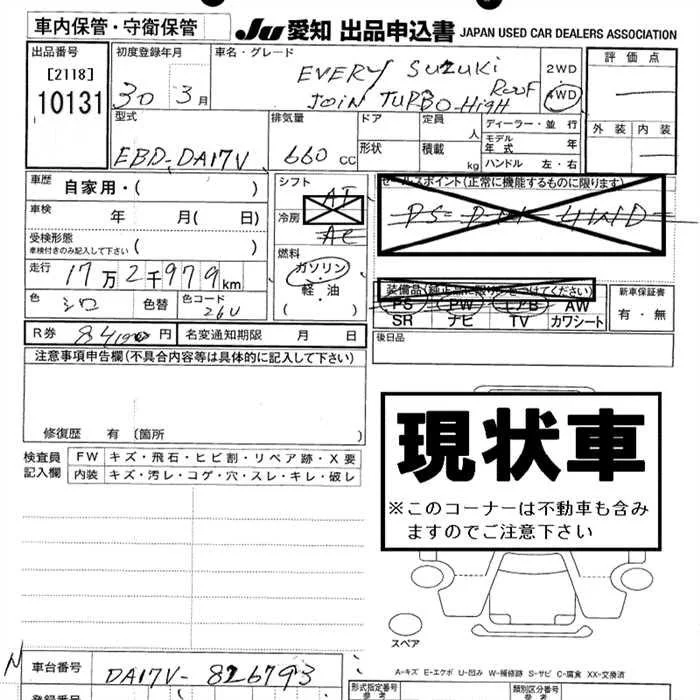 車内保管・守衛保管
JU 愛知 出品申込書 JAPAN USED CAR DEALERS ASSOCIATION
出品番号 初度登録年月 車名・グレード 評価点
[2118] 10131
30 3月
EVERY SUZUKI
JOIN TURBO-HIGH ROOF
2WD
4WD
型式 排気量 ドア 定員 人 ディーラー・並行 外装 内装
EBD-DA17V 660 CC 形状 積載 kg モデル年式 年
ハンドル 左・右
車歴 自家用・( )
シフト AT
セールスポイント(正常に機能するものに限ります)
車検 年 月( 日)
冷房 AC
受検形態 ( )
車検付きのみ記入して下さい
燃料 ガソリン・軽・油 ( )
走行 17万2千979km
装備品(純正品に限り○をつけてください)
PS PW エアB AW
SR ナビ TV カワシート
新車保証書 有・無
色 シロ 色替 色コード 26U
R券 円 名変通知期限 月 日
後日品
注意事項申告欄(不具合内容等は具体的に記入して下さい)
修復歴 有 (箇所 )
現状車
※このコーナーは不動車も含み
ますのでご注意下さい
検査員記入欄
FW キズ・飛石・ヒビ割・リペア跡・X要
内装 キズ・汚レ・コゲ・穴・スレ・キレ・破レ
スペア
A=キズ E=エクボ U=凹み W=補修跡 S=サビ C=腐食 XX=交換済
N
車台番号 DA17V-826793
形式指定番号 類別区分番号
参考 参考